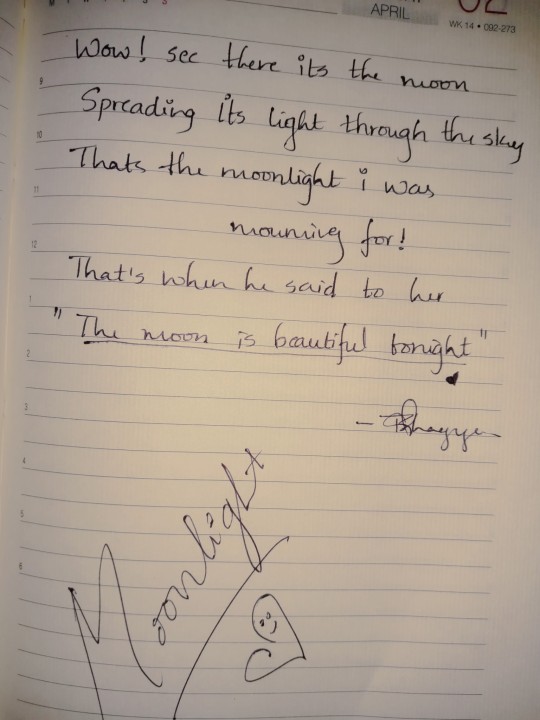 APRIL 02
WK 14 • 092-273
Wow! see there its the moon
Spreading its light through the sky
Thats the moonlight i was
mourning for!
That's when he said to her
"The moon is beautiful tonight"
Moonlight
9
10
11
12
1
2
3
4
5
6